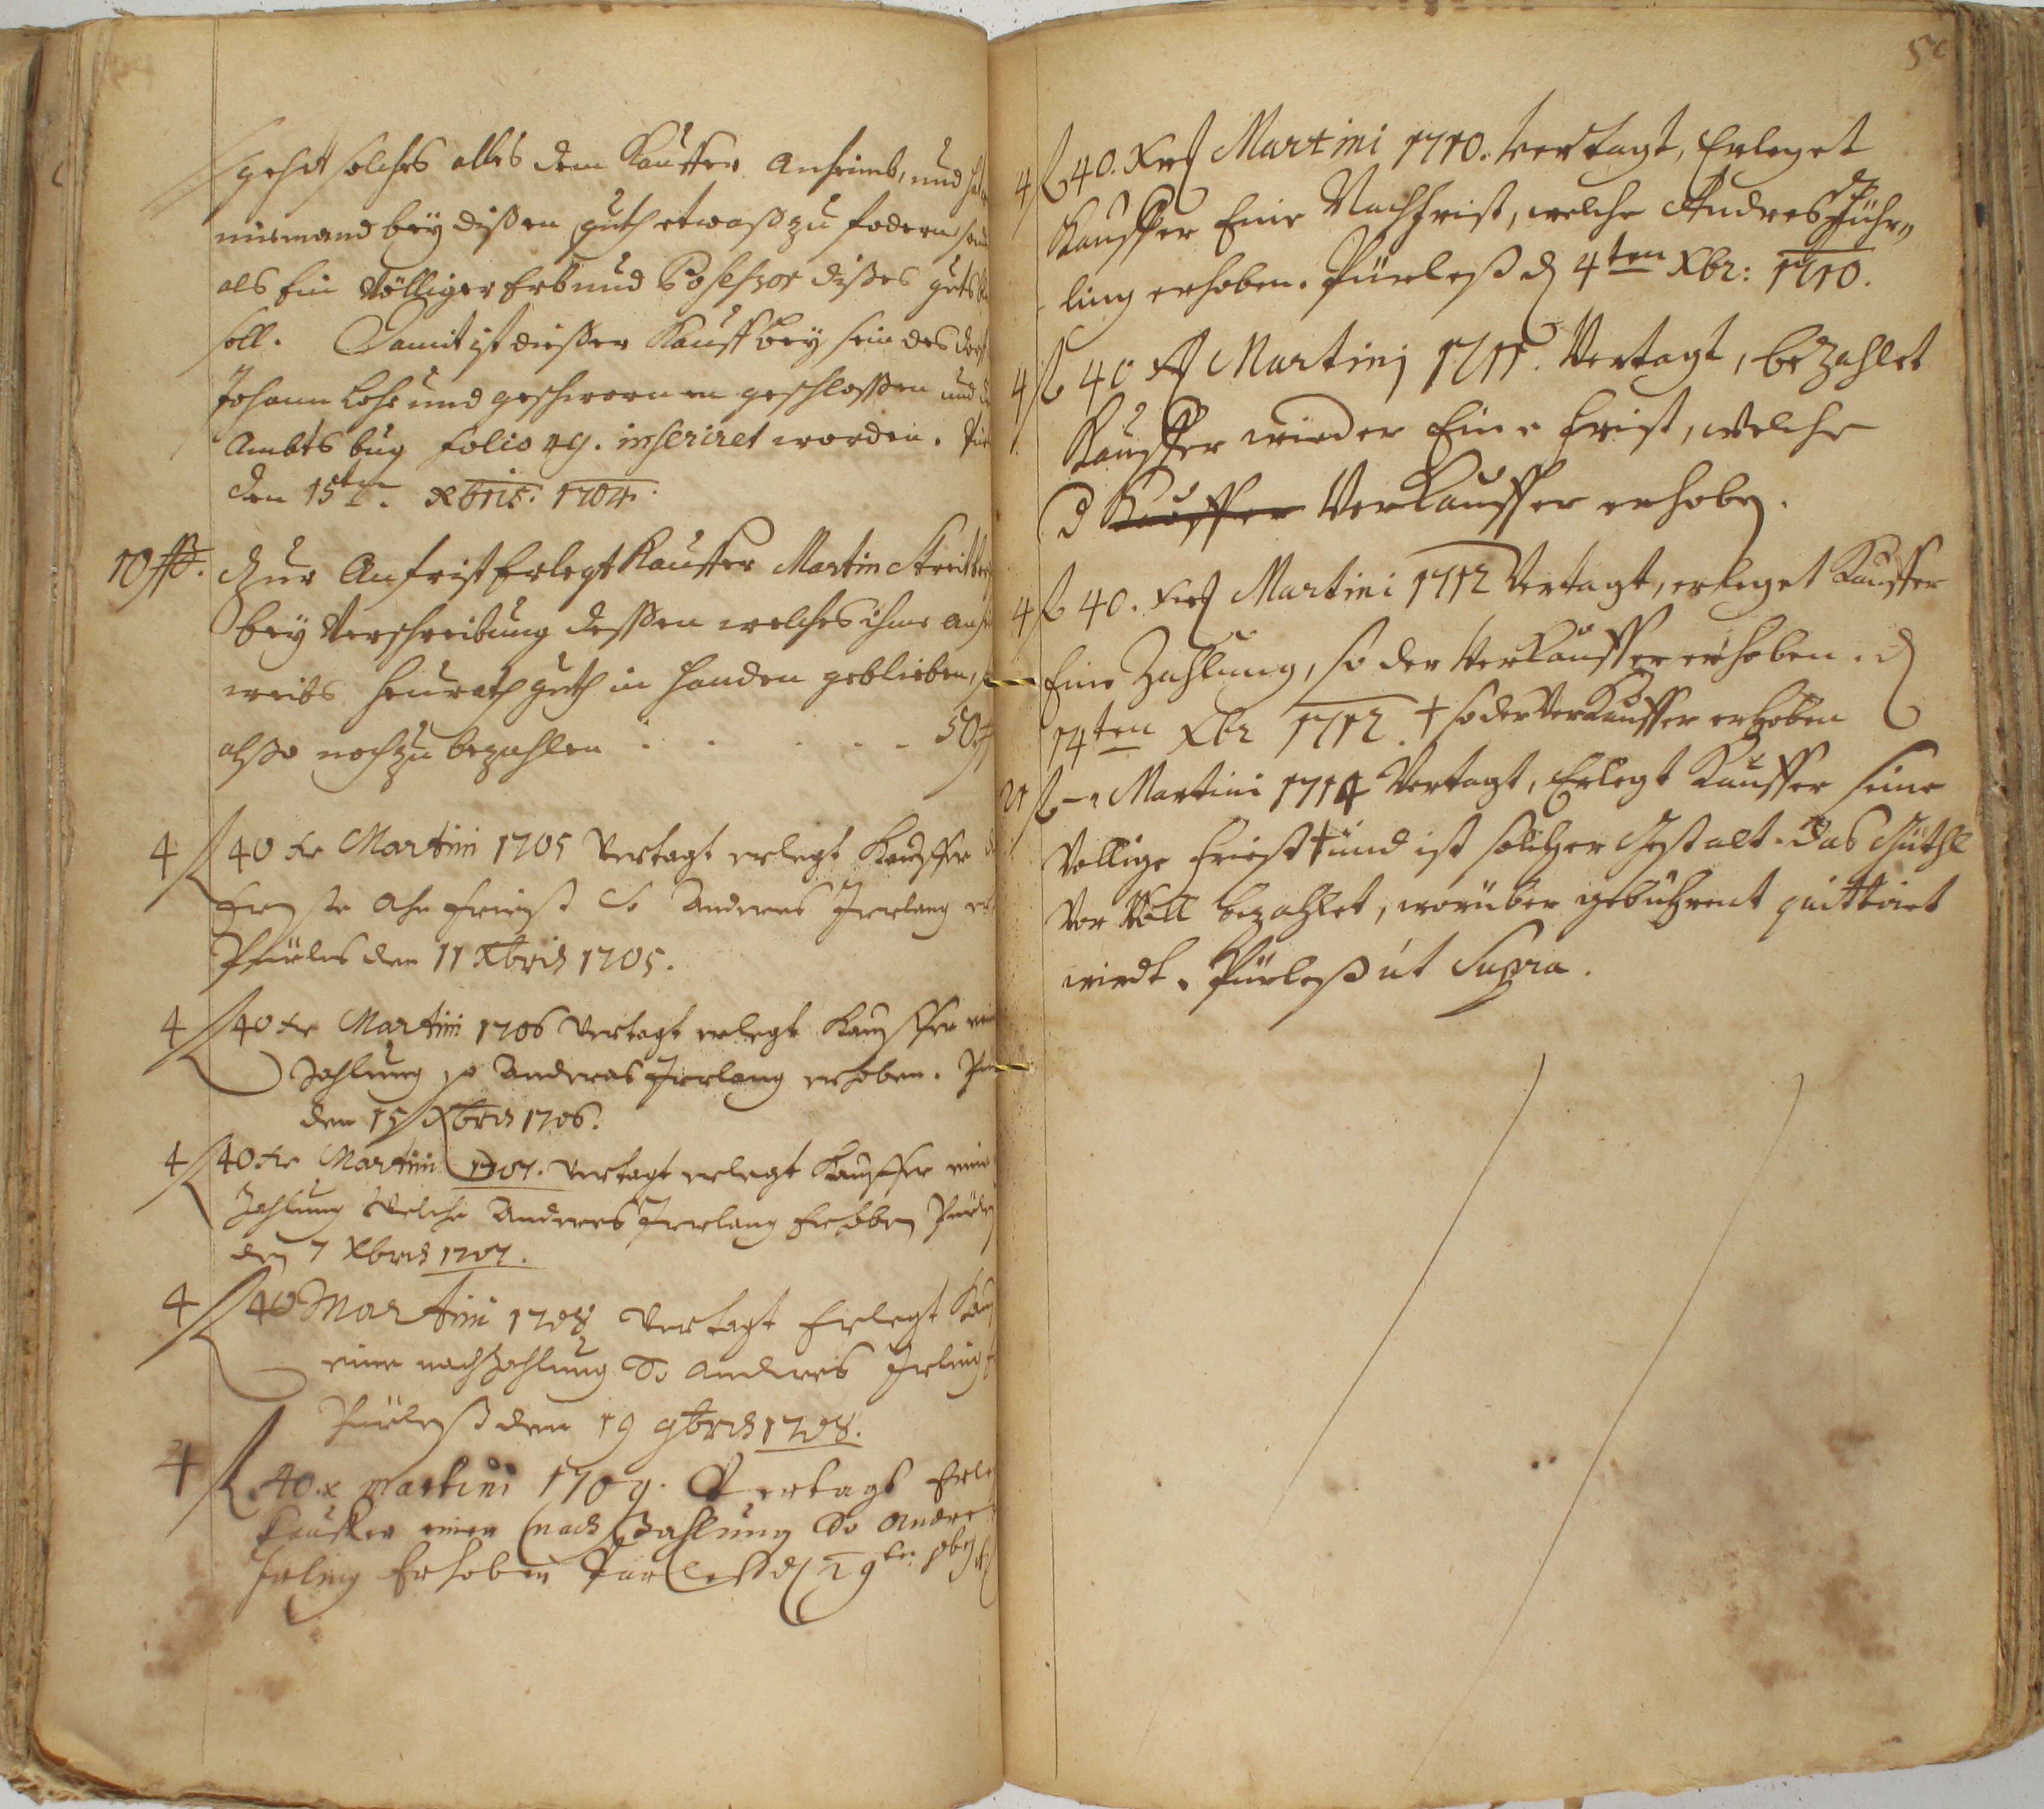 gehet solches alles dem Kauffer anheimb, und
niemand bey dißen guth etwaß zu fodern
als Ein Völliger Erb und Possessor dißes guts
soll. Damit ist dießer Kauff bey sein des
Johann Lohs und geschwornen geschlossen und
Ambts bug folio 49. inseriret worden.
den 15ten Xbris. 1704.
10 fl. Zur Anfrist Erlegt Kauffer Martin
bey Verschreibung dessen welches ihme
weibs heurath guth in handen geblieben,
also noch zu bezahlen . . . . . 50 fl
4 fl 40 kr Martini 1705 Vertagt erlegt Kauffer
Erste Ahnfriest So Anderes Irrlang
Pürles den 11 Xbris 1705.
4 fl 40 kr Martini 1706 Vertagt erlegt Kauffer
Zahlung so Anderas Irrlang erhoben.
den 15 Xbris 1706.
4 fl 40 kr Martini 1707. Vertagt erlegt Kauffer eine
Zahlung Welche Anderes Irrlang Erhoben
den 7 Xbris 1707.
4 fl 40 Martini 1708 Vertagt Erlegt
eine nachzahlung So Anderes Irling
Pürleß den 19 9bris 1708.
4 fl 40 x Martini 1709. Vertagt
Kauffer einen nach Zahlung So Andre
Irling Erhoben Pürleß d 29ten
4 fl 40. Xr Martini 1710. Vertagt, Erleget
Kauffer Eine Nachfrist, welche Andres Jühr„
ling erhoben. Pürleß d 4ten Xbr: 1710.
4 fl 40 X Martinj 1711. Vertagt, bezahlet
Kauffer wieder Eine Frist, welche
d Kauffer Verkauffer erhoben.
4 fl 40. Xr Martini 1712 Vertagt, erleget Kauffer
Eine Zahlung, so der Verkauffer erhoben. d
14ten Xbr 1712. † so der Verkauffer erhoben
21 fl – Martini 1714 Vertagt, Erlegt Kauffer seine
Vollige Friest † und ist solcher Gestalt das Güthl
vor Voll bezahlet, worüber gebührent quittiret
wirdt. Pürleß ut Supra.